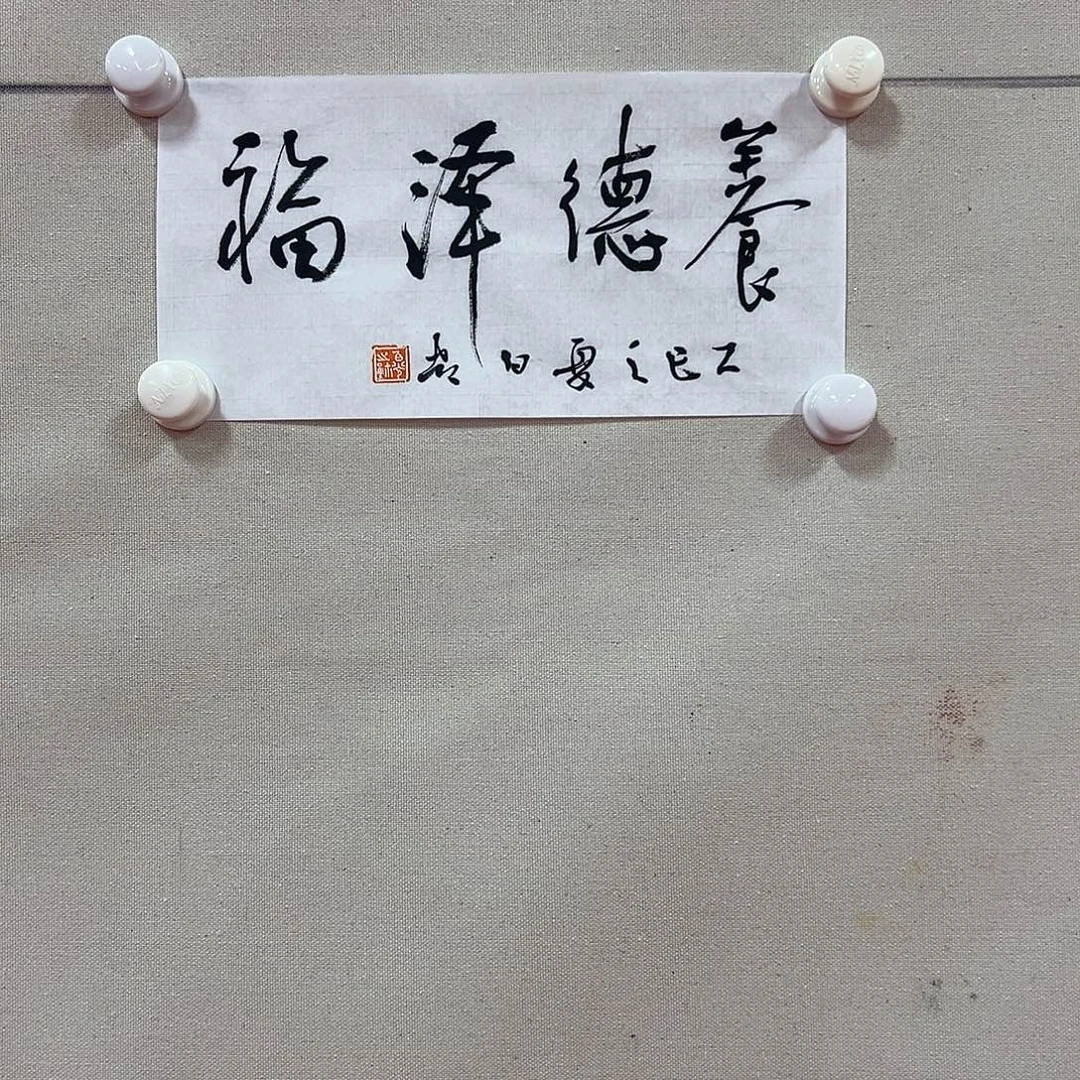 養德澤福
乙巳之夏日